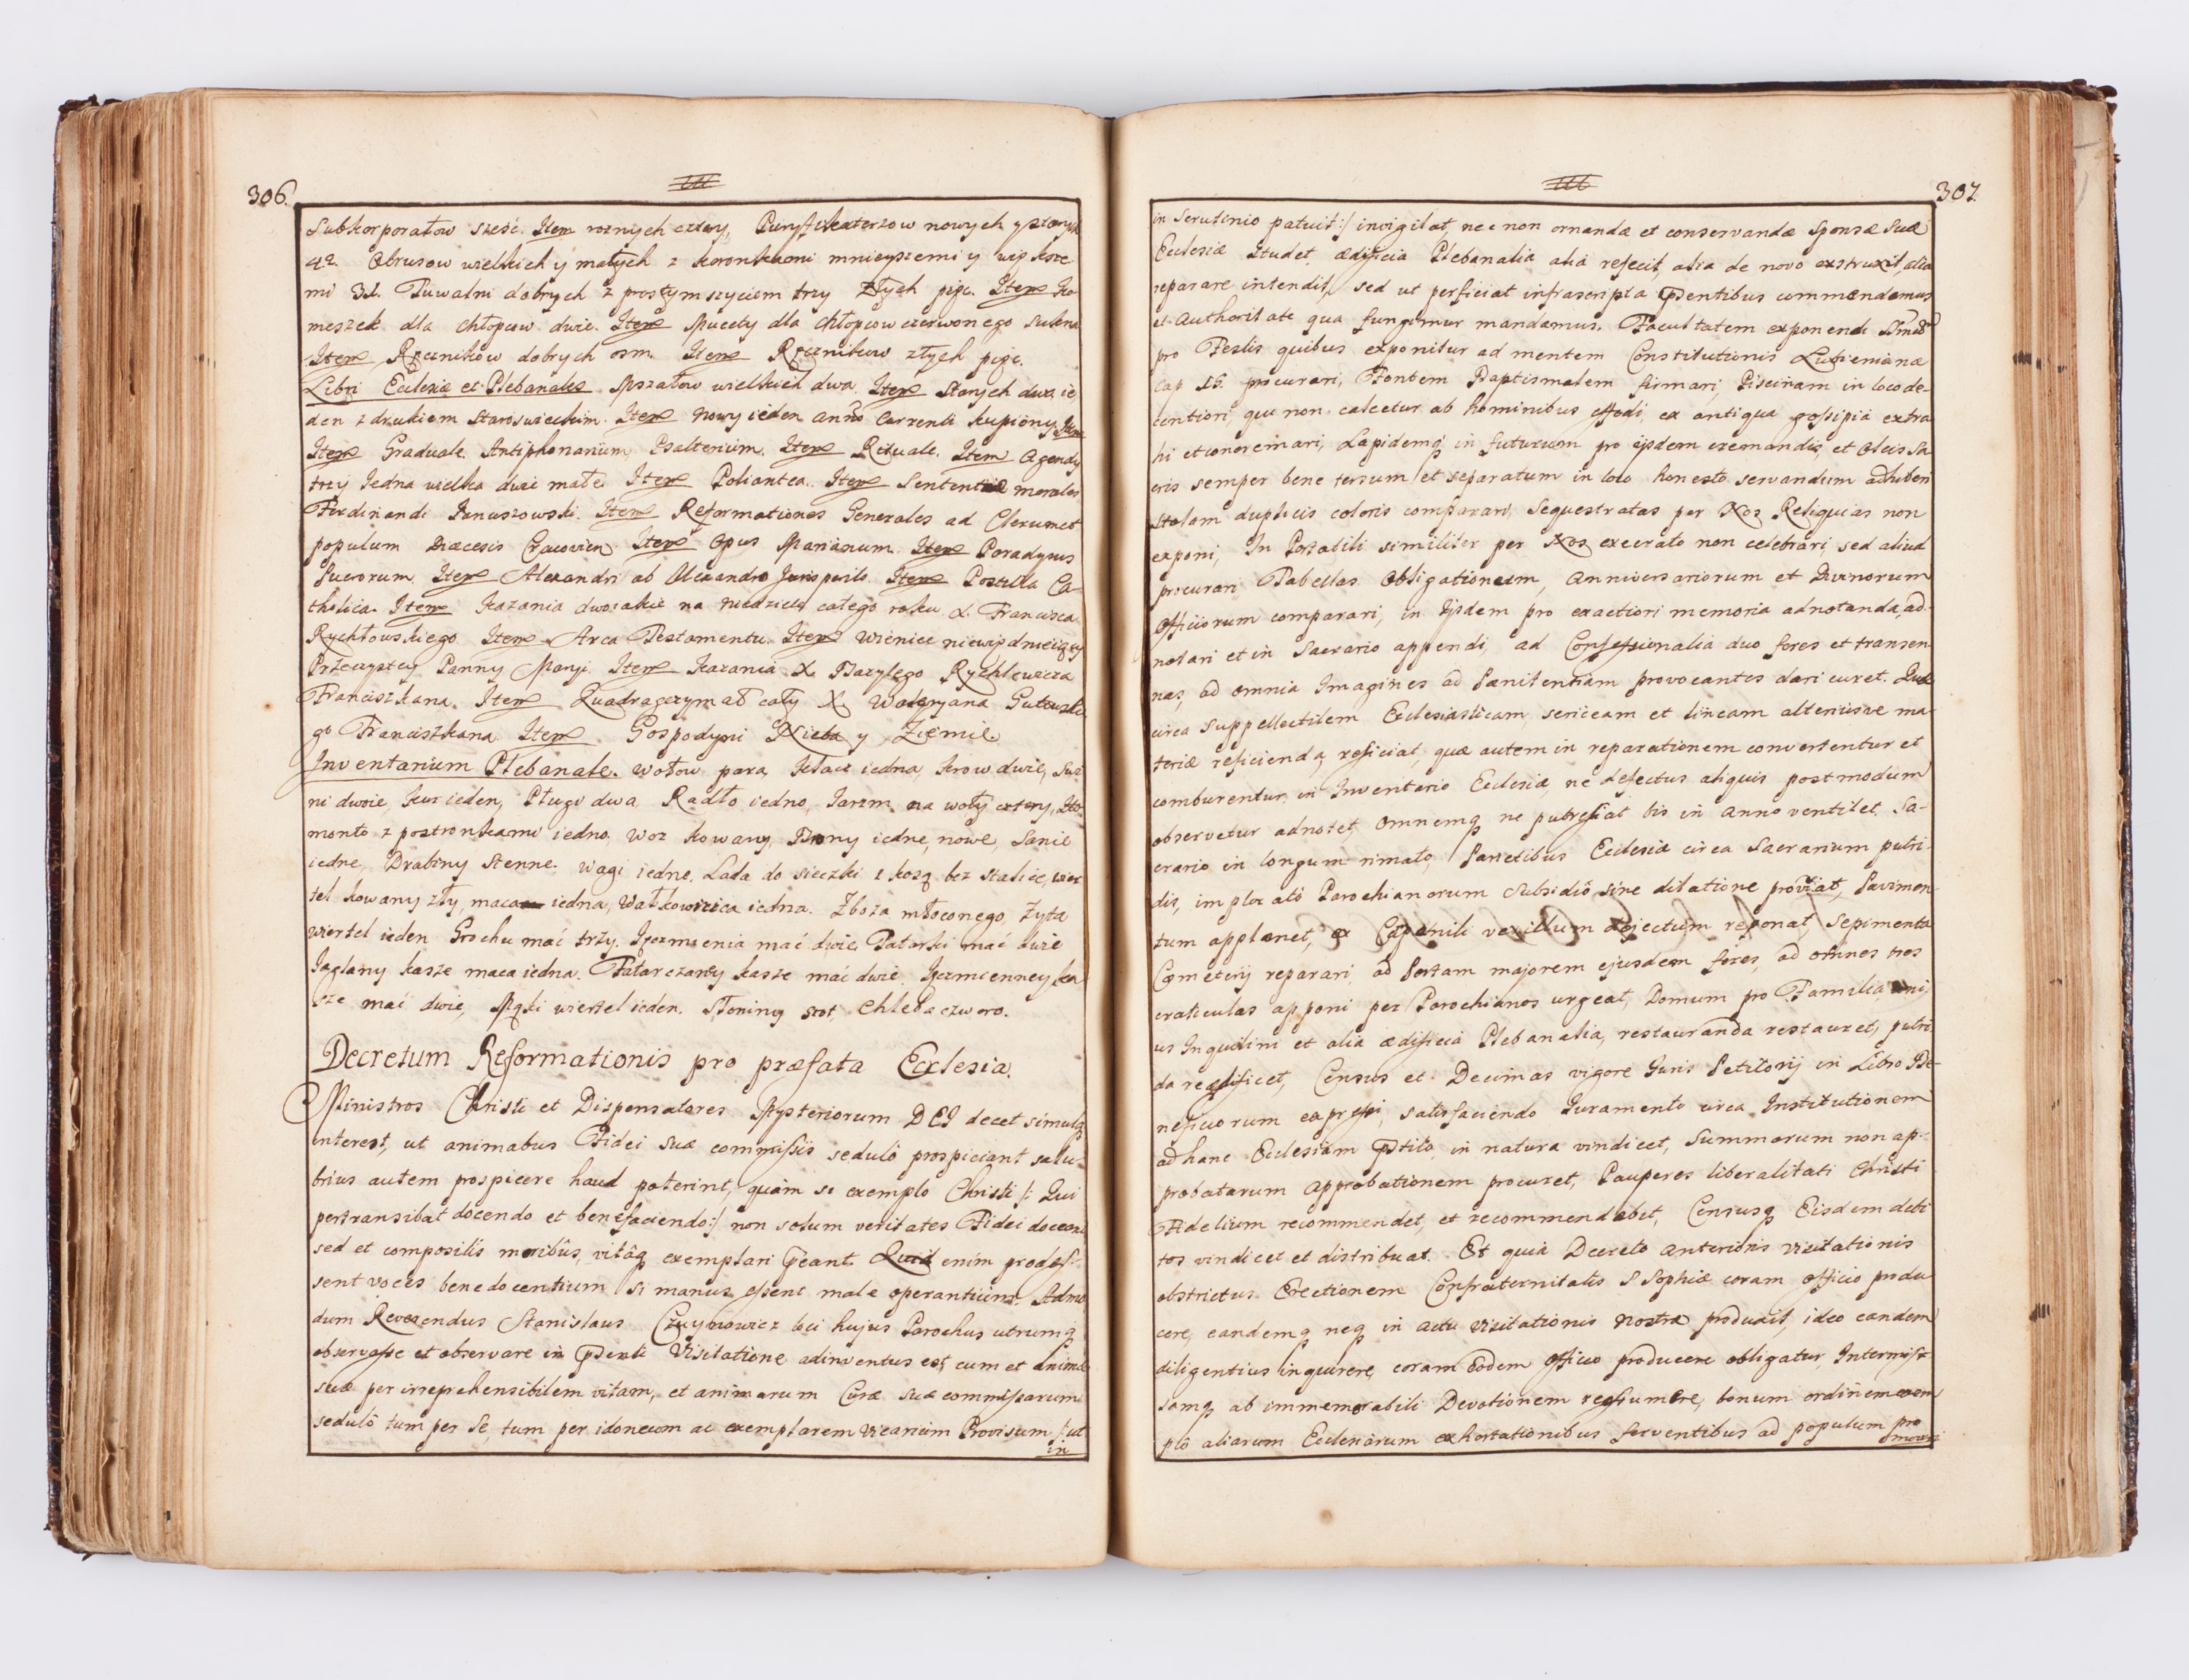 306.
Subkorporałow sześć. Item roznych cztery, Puryfikaterzow nowych y starych
42. Obrusow wielkich y małych z koronkami mnieyszemi y większe
mi 31. Tuwalni dobrych z prostym szyciem trzy złych pięc. Item Ko
meszek dla chłopcow dwie. Item Mucety dla chłopcow czerwonego sukna
Item Ręcznikow dobrych osm. Item Ręcznikow złych pięc.
Libri Ecclesiæ et Plebanales Mszałow wielkich dwa Item Starych dwa ie
den z drukiem Staroswieckim. Item nowy ieden anno currenti kupiony
Item Graduale. Antiphonarium, Psalterium. Item Rituale. Item Agendy
trzy Jedna wielka dwie małe Item Poliantea. Item Sententiæ morales
Ferdinandi Januszowski. Item Reformationes Generales ad Clerum et
populum Diæcesis Cracovien Item Opus Marianum. Item Paradysus
Puerorum. Item Alexandri ab Alexandro Jurisperito. Item Postilla Ca
tholica. Item Kazania dwoiakie na niedziele całego roku X. Francisca
Rychłowskiego Item Arca Testamentu. Item Wieniec niewiędnieiący
Przeczystey Panny Maryi Item Kazania X. Bazylego Rychlewicza
Franciszkana. Item Quadragezymał cały X. Waleryana Gutowskie
go Franciszkana Item Gospodyni Nieba y Ziemie
Inventarium Plebanale. Wołow para, Klacz iedna, krow dwie, Swi
ni dwoie, kur ieden, Pługi dwa, Radło iedno, Jarzm na woły cztery, Cho
monto z postronkami iedno, Woz kowany, Brony iedne, nowe, Sanie
iedne, Drabiny Stenne. Wagi iedne. Lada do sieczki z kosą bez stalnic, wier
tel kowany zły, maca iedna, Wałkownica iedna. Zboża młoconego, Żyta
wiertel ieden Grochu mać trzy. Jęczmienia mać dwie Tatarki mać dwie
Jaglany kasze maca iedna. Tatarczany kasze mać dwie. Jęczmienney ka
sze mać dwie, Mąki wiertel ieden. Słoniny szot, Chleba czworo.
Decretum Reformationis pro præfata Ecclesia.
Ministros Christi et Dispensatores Mysteriorum DEI decet simulq
interest, ut animabus Fidei suæ commissis sedulò prospiciant salu-
brius autem prospicere haud poterint, quàm si exemplo Christi /: Qui
pertransibat docendo et benefaciendo :/ non solum veritates Fidei doceant
sed et compositis moribus, vitáq exemplari præeant. Quid enim prodes-
sent voces benedocentium si manus essent male operantium. Admo
dum Reverendus Stanislaus Czuynowicz loci hujus Parochus utrumq
observasse et observare in præsenti Visitatione adinventus est, cum et animæ
suæ per irreprehensibilem vitam, et animarum Curæ suæ commissarum
sedulò tum per Se, tum per idoneum ac exemplarem Vicarium Provisum /: ut
in
307.
in Scrutinio patuit :/ invigilat, nec non ornandæ et conservandæ Sponsæ Suæ
Ecclesiæ Studet, ædificia Plebanalia alia refecit, alia de novo exstruxit, alia
reparare intendit, sed ut perficiat infrascripta præsentibus commendamus
et Authoritate qua fungimur mandamus. Facultatem exponendi
pro Festis quibus exponitur ad mentem Constitutionis Lubienianæ
cap 16. procurari, Fontem Baptismalem firmari, Piscinam in loco de-
centiori, qui non calcetur ab hominibus effodi, ex antiqua gossipia extra
hi et concremari, Lapidemq in futurum pro ejsdem cremandis, et Oleis Sa
cris semper bene tersum et separatum in loco honesto servandum adhiberi
Stolam duplicis coloris comparari, Sequestratas per Nos Reliquias non
exponi, In Portatili similiter per Nos execrato non celebrari, sed aliud
procurari Tabellas Obligationum, Anniversariorum et Divinorum
Officiorum comparari, in ijsdem pro exactiori memoria adnotanda, ad-
notari et in Sacrario appendi, ad Confessionalia duo fores et transen
nas, ad omnia Imagines ad Pænitentiam provocantes dari curet. Quæ
circa suppellectilem Ecclesiasticam sericeam et lineam alteriusve ma-
teriæ reficienda, reficiat, quæ autem in reparationem convertentur et
comburentur in Inventario Ecclesiæ, ne defectus aliquis postmodum
observetur adnotet, omnemq ne putrefiat bis in Anno ventilet. Sa-
crario in longum rimato, Parietibus Ecclesiæ circa Sacrarium putri-
dis, implorato Parochianorum Subsidiô sine dilatione proviat, Pavimen-
tum applanet, vexillum dejectum reponat, Sepimenta
Cæmeterij reparari, ad Portam majorem ejusdem fores, ad omnes tres
craticulas apponi per Parochianos urgeat, Domum pro Familia
us Inquilini et alia ædificia Plebanalia, restauranda restauret, putri
da reædificet, Census et Decimas vigore Juris Petitorij in Libro Be-
neficiorum expressi, satisfaciendo Juramento circa Institutionem
ad hanc Ecclesiam præstito, in natura vindicet, Summarum non ap-
probatarum approbationem procuret, Pauperes liberalitati Christi
Fidelium recommendet, et recommendabit, Censusq Eisdem debi
tos vindicet et distribuat. Et quia Decreto anterioris Visitationis
obstrictus Erectionem Confraternitatis S Sophiæ coram officio produ
cere, eandemq neq in actu Visitationis Nostræ produxit, ideo eandem
diligentius inquirere, coram Eodem Officio producere obligatur. Intermis-
samq ab immemorabili Devotionem reassumere, bonum ordinem exem
plo aliarum Ecclesiarum exhortationibus ferventibus ad populum pro